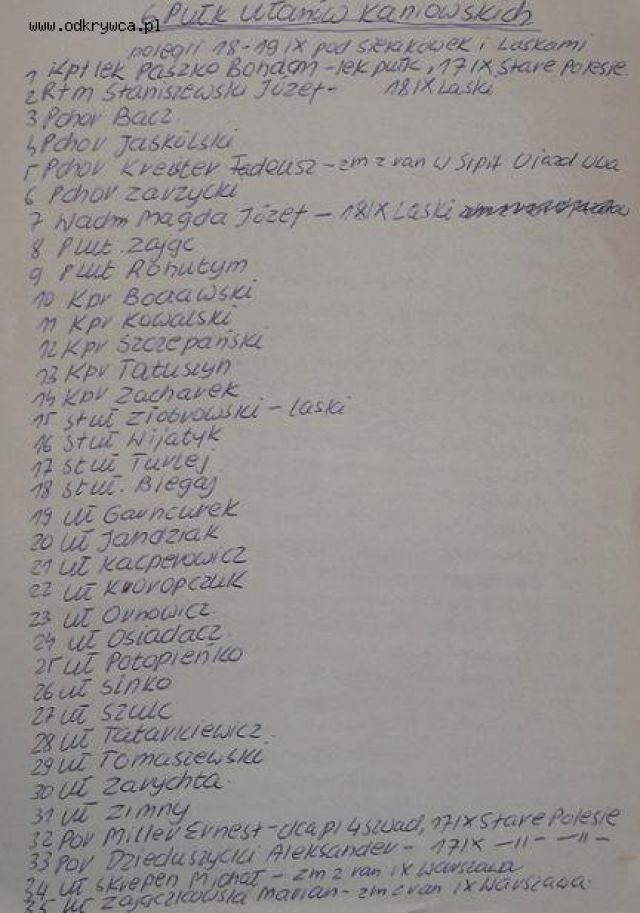 www.odkrywca.pl
6 Pułk Ułanów Kaniowskich
polegli 18-19 IX pod Sierakówek i Laskami
1 Kpt lek Paszko Bohdan - lek pułk, 17 IX Stare Polesie
2 Rtm Staniszewski Józef - 18 IX Laski
3 Pchor Bacz
4 Pchor Jaskólski
5 Pchor Kreister Tadeusz - zm z ran w Szpit Ujazd Wwa
6 Pchor Zarzycki
7 Wachm Magda Józef - 18 IX Laski
8 Plut. Zając
9 Plut Rohutym
10 Kpr Bocławski
11 Kpr Kowalski
12 Kpr Szczepański
13 Kpr Tatuszyn
14 Kpr Zacharek
15 St uł Ziobrowski - Laski
16 St uł Wijatyk
17 St uł Turlej
18 St uł. Biegaj
19 uł Garncurek
20 uł Jandziak
21 uł Kacperowicz
22 uł Kuropczuk
23 uł Ornowicz
24 uł Osiadacz.
25 uł Potopieńko
26 uł Sinko
27 uł Szulc
28 uł Tatarkiewicz.
29 uł Tomaszewski
30 uł Zarychta
31 uł Zimny
32 Por Miller Ernest - dca pl 4 szwad, 17 IX Stare Polesie
33 Por Dzieduszycki Aleksander - 17 IX -11- -11-
34 uł Skrepen Michał - zm z ran IX Warszawa
35 uł Zajączkowski Marian - zm z ran IX Warszawa